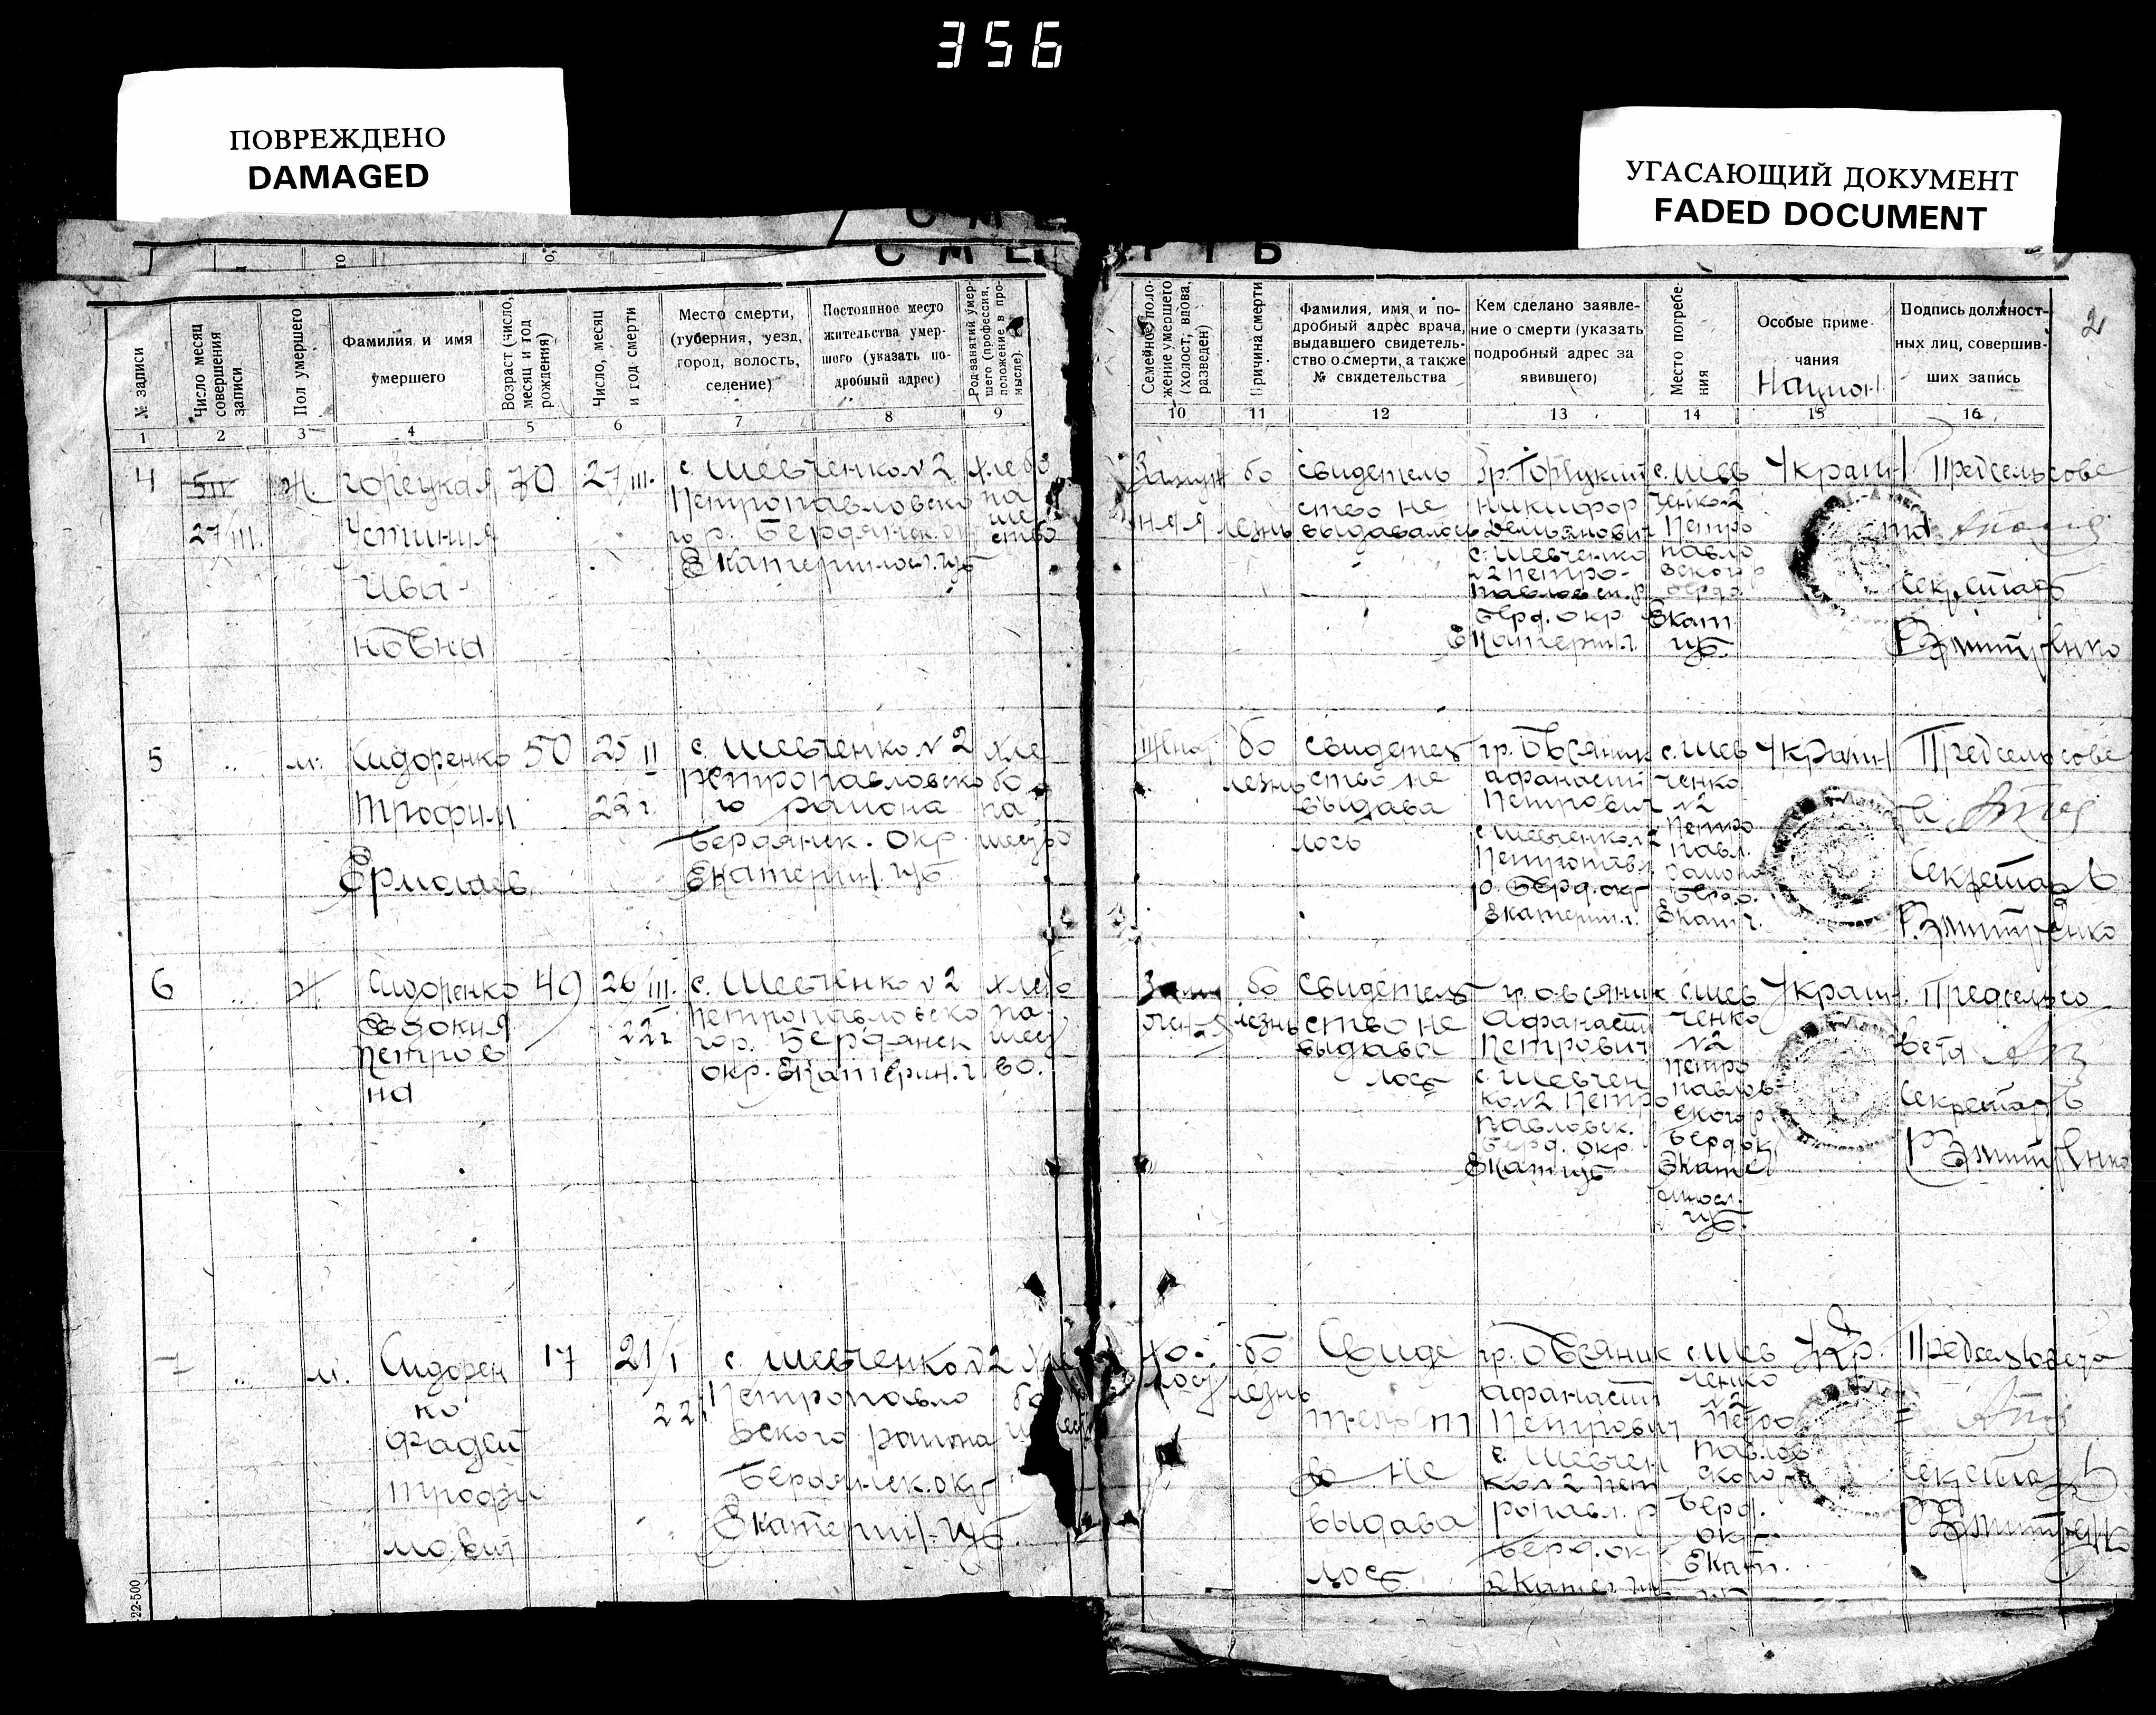 356
ПОВРЕЖДЕНО
DAMAGED
УГАСАЮЩИЙ ДОКУМЕНТ
FADED DOCUMENT
С М Е Р Т Ь
2
№ записи
Число месяц
совершения
записи
Пол умершего
Фамилия и имя
умершего
Возраст (число,
месяц и год
рождения)
Число, месяц
и год смерти
Место смерти,
(губерния, уезд,
город, волость,
селение)
Постоянное место
жительства умер-
шого (указать по-
дробный адрес)
Род занятий умер-
шего (профессия,
положение в про-
мысле).
Семейное поло-
жение умершего
(холост, вдова,
разведен)
Причина смерти
Фамилия, имя, и по-
дробный адрес врача,
выдавшего свидетель-
ство о смерти, а также
№ свидетельства
Кем сделано заявле-
ние о смерти (указать
подробный адрес за
явившего)
Место погребе-
ния
Особые приме-
чания
Национ
Подпись должност-
ных лиц, совершив-
ших запись
1 2 3 4 5 6 7 8 9 10 11 12 13 14 15 16
4
27/III.
Ж
Горецкая
Устиния
Ива-
новна
70
27/III.
с. Шевченко №2
Петропавловско
го р. Бердянск. ок
Екатеринос. губ
хлебо
па
ше
ство
Замуж
няя
бо
лезнь
свидетель
ство не
выдавалось
Гр. Горецкий
Никифор
Демьянович
с. Шевченко
№2 Петро-
павловск. р
Берд. окр.
Екатерин. г.
с. Шев
ченко 2
Петро
павло
вского р
Екат.
губ.
Украин
Предсельсове
та
Секретарь
5
"
м.
Сидоренко
Трофим
Ермолаев
50
25 II
22 г.
с. Шевченко №2
Петропавловско
го района
Бердянск. окр
Екатерин. губ
хле
бо
па
бо
лезнь
свидетель
ство не
выдава
лось
гр. Овсяник
Афанасий
Петрович
с. Шевченко №2
Петропавл.
р. Берд. окр
Екатерин. г.
с. Шев
ченко
№2
Петро
павл.
района
Берд. о.
Екат. г.
Украин
Предсельсове
та
Секретарь
6
"
Ж.
Сидоренко
Евдокия
Петров
на
49
26/III.
22 г
с. Шевченко №2
Петропавловско
го р. Бердянск
окр. Екатерин. г.
хлебо
па
шес
во.
бо
лезнь
свидетель
ство не
выдава
лось
гр. Овсяник
Афанасий
Петрович
с. Шевчен
ко №2 Петро
павловск.
Берд. окр.
Екат губ
с. Шев
ченко
№2
Петро
павлов
ского р.
Берд ок
Екате
ринос.
губ.
Украин.
Предсельсо
вета
Секретарь
7
"
м.
Сидорен
ко
Фадей
Трофи
мович
17
21/I
22 г.
с. Шевченко №2
Петропавло
вского района
Бердянск. окр
Екатерин. губ.
хо-
лост
бо
лезнь
Свиде
тельст
во не
выдава
лось
гр. Овсяник
Афанасий
Петрович
с. Шевчен
ко №2 Пет
ропавл. р
Берд. окр
с. Шев
ченко
№2
Петро
павлов
ского
Берд.
окр.
Екат.
Укр.
Предсельсовета
Секретарь
22-500